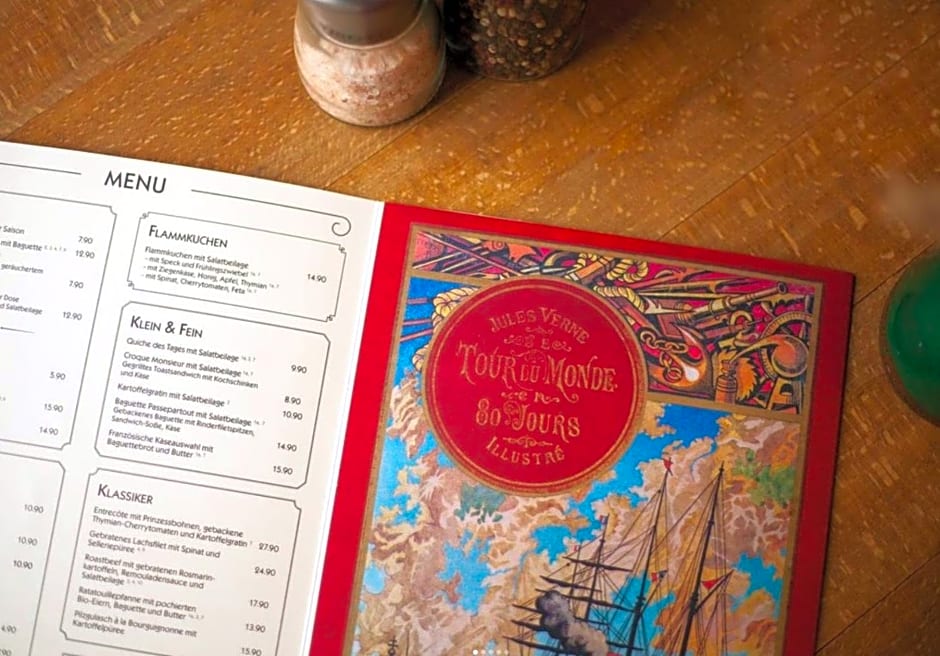 MENU
r Saison
7.90
mit Baguette
12.90
geräuchertem
7.90
r Dose
d Salatbeilage
12.90
5.90
15.90
14.90
10.90
10.90
10.90
4.90
FLAMMKUCHEN
Flammkuchen mit Salatbeilage
- mit Speck und Frühlingszwiebel
14.90
- mit Ziegenkäse, Honig, Apfel, Thymian
- mit Spinat, Cherrytomaten, Feta
KLEIN & FEIN
Quiche des Tages mit Salatbeilage
9.90
Croque Monsieur mit Salatbeilage
Gegrilltes Toastsandwich mit Kochschinken
und Käse
8.90
Kartoffelgratin mit Salatbeilage
10.90
Baguette Passepartout mit Salatbeilage
Gebackenes Baguette mit Rinderfiletspitzen,
Sandwich-Soße, Käse
14.90
Französische Käseauswahl mit
Baguettebrot und Butter
15.90
KLASSIKER
Entrecôte mit Prinzessbohnen, gebackene
Thymian-Cherrytomaten und Kartoffelgratin
27.90
Gebratenes Lachsfilet mit Spinat und
Selleriepüree
24.90
Roastbeef mit gebratenen Rosmarin-
kartoffeln, Remouladensauce und
Salatbeilage
17.90
Ratatouillepfanne mit pochierten
Bio-Eiern, Baguette und Butter
13.90
Pilzgulasch à la Bourguignonne mit
Kartoffelpüree
15.90
JULES VERNE
LE
TOUR DU MONDE
EN
80 JOURS
ILLUSTRÉ